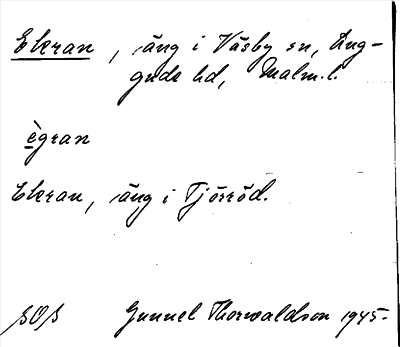 Ekeran, äng i Väsby sn, Lug-
gude hd, Malm. l.
ègran
Ekeran, äng i Tjörröd.
SOS Gunnel Thorwaldson 1945.